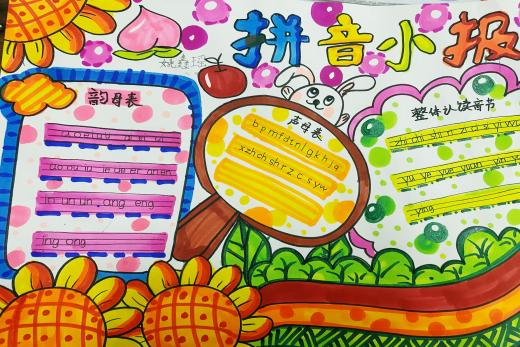 拼音小报
韵母表
in un ün ang eng
ing ong
声母表
b p m f d t n l g k h j q
x zh ch sh r z c s y w
整体认读音节
zhi chi shi ri zi ci si yi wu
yu ye yue yuan yin yun
ying